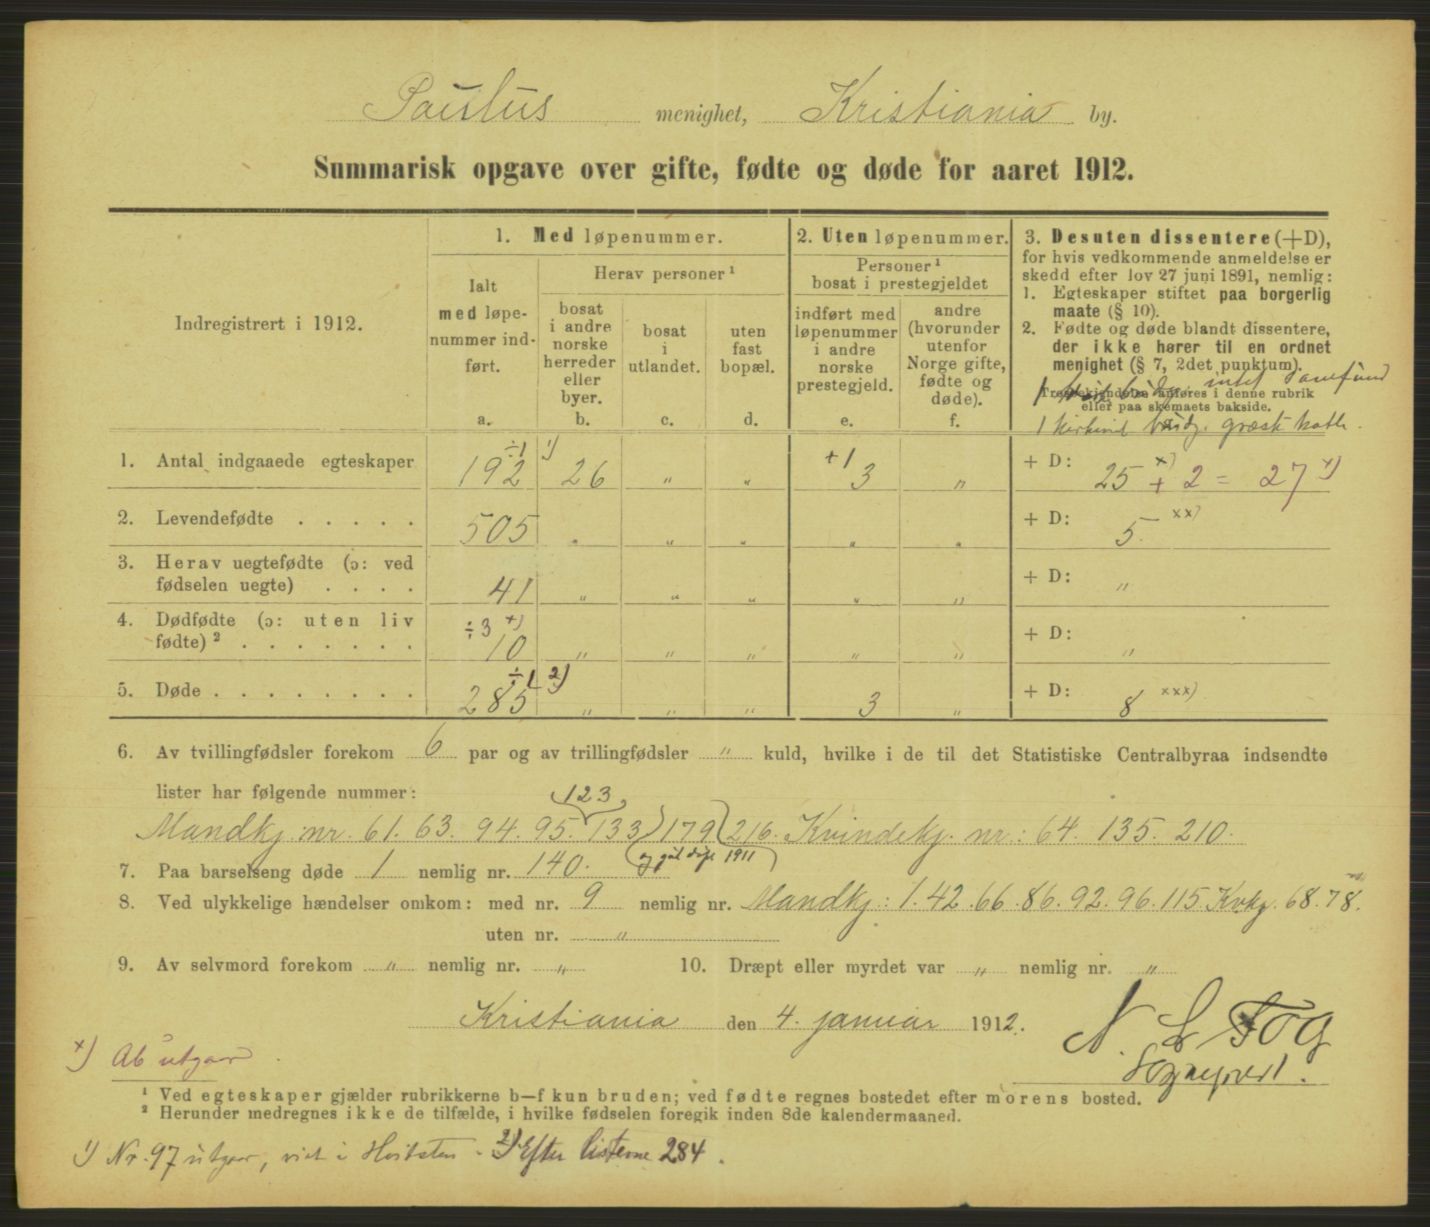 Paulus menighet, Kristiania by.
Summarisk opgave over gifte, fødte og døde for aaret 1912.
Indregistrert i 1912.
1. Med løpenummer.
Ialt med løpenummer indført.
a.
Herav personer ¹
bosat i andre norske herreder eller byer.
b.
bosat i utlandet.
c.
uten fast bopæl.
d.
2. Uten løpenummer.
Personer ¹ bosat i prestegjeldet
indført med løpenummer i andre norske prestegjeld.
e.
andre (hvorunder utenfor Norge gifte, fødte og døde).
f.
3. Desuten dissentere (+D),
for hvis vedkommende anmeldelse er
skedd efter lov 27 juni 1891, nemlig:
1. Egteskaper stiftet paa borgerlig
maate (§ 10).
2. Fødte og døde blandt dissentere,
der ikke hører til en ordnet
menighet (§ 7, 2det punktum).
intet samfund
anføres i denne rubrik
eller paa skemaets bakside.
græsk kath.
1. Antal indgaaede egteskaper 192 ÷1 ¹) 26 " " +1 3 " + D: 25 x) + 2 = 27 x)
2. Levendefødte . . . . . 505 " " " " " + D: 5. xx)
3. Herav uegtefødte (ɔ: ved
fødselen uegte) . . . . 41 " " " " " + D: "
4. Dødfødte (ɔ: uten liv
fødte) ² . . . . . . . ÷3 x) 10 " " " " " + D: "
5. Døde . . . . . . . . 285 ÷1 2) " " " 3 " + D: 8 xxx)
6. Av tvillingfødsler forekom 6 par og av trillingfødsler " kuld, hvilke i de til det Statistiske Centralbyraa indsendte
lister har følgende nummer:
123
Mandkj. nr. 61. 63. 94. 95. 133) 179 (216. Kvindekj. nr.: 64. 135. 210.
1911
7. Paa barselseng døde 1 nemlig nr. 140.
8. Ved ulykkelige hændelser omkom: med nr. 9 nemlig nr. Mandkj: 1. 42. 66. 86. 92. 96. 115 Kvkj. 68. 78.
uten nr. "
9. Av selvmord forekom " nemlig nr. " 10. Dræpt eller myrdet var " nemlig nr. "
Kristiania den 4. januar 1912.
N. L. Fog
Sognepræst.
x) Ab utgaar.
¹ Ved egteskaper gjælder rubrikkerne b—f kun bruden; ved fødte regnes bostedet efter morens bosted.
² Herunder medregnes ikke de tilfælde, i hvilke fødselen foregik inden 8de kalendermaaned.
¹) Nr. 97 utgaar, viet i Hvitsten. 2) Efter listerne 284.